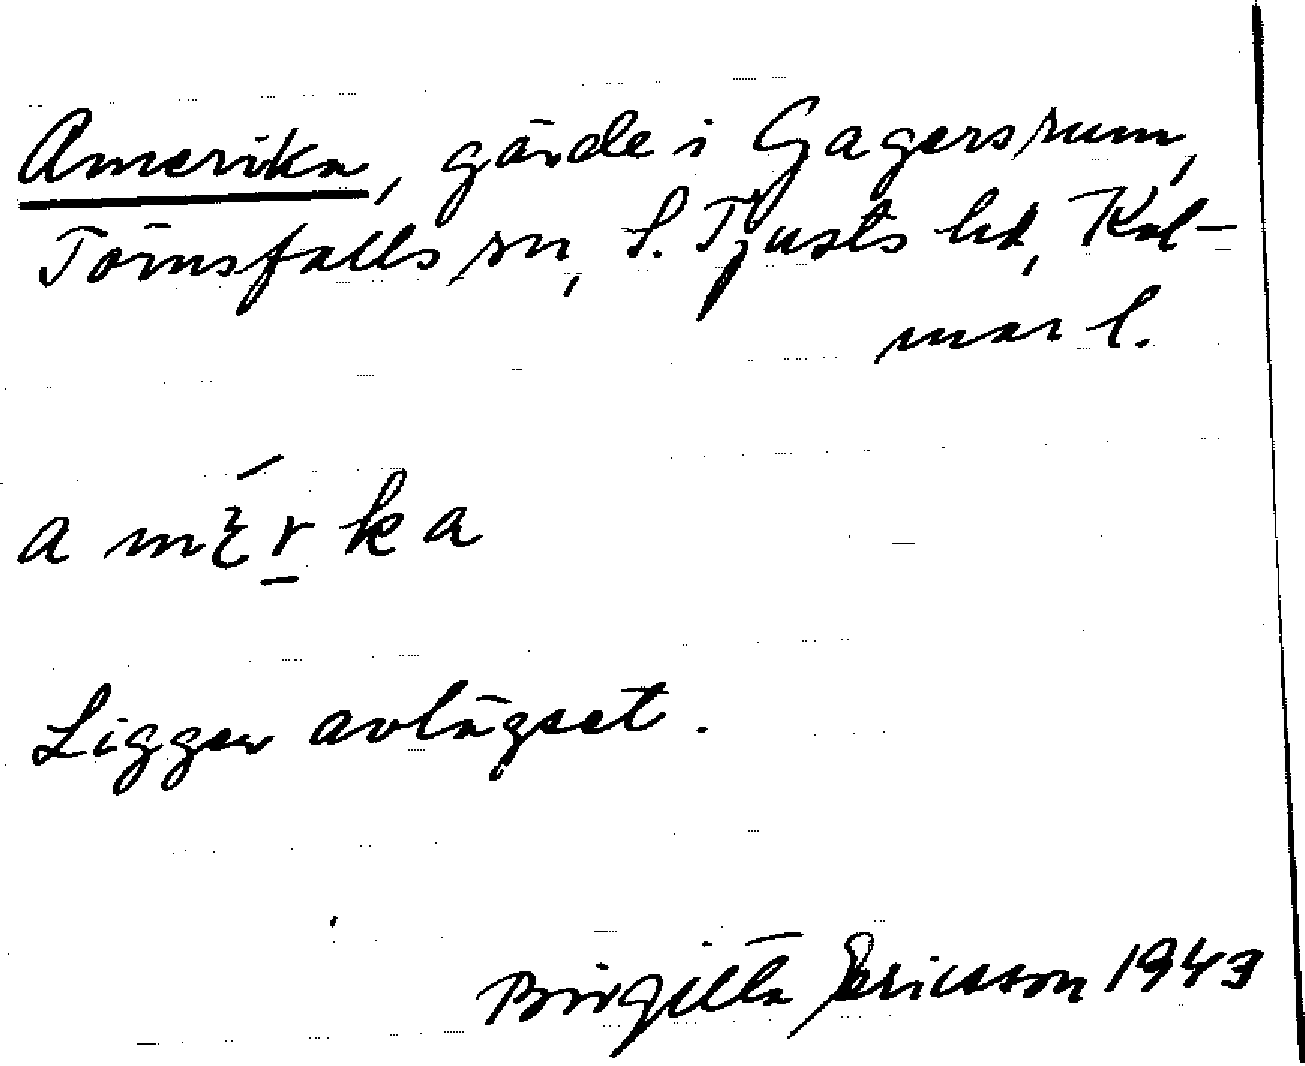 Amerika, gärde i Gagersrum,
Törnsfalls sn, S. Tjusts hd, Kal-
mar l.
a mɛ́r̲ka
Ligger avlägset.
Birgitta Ericsson 1943